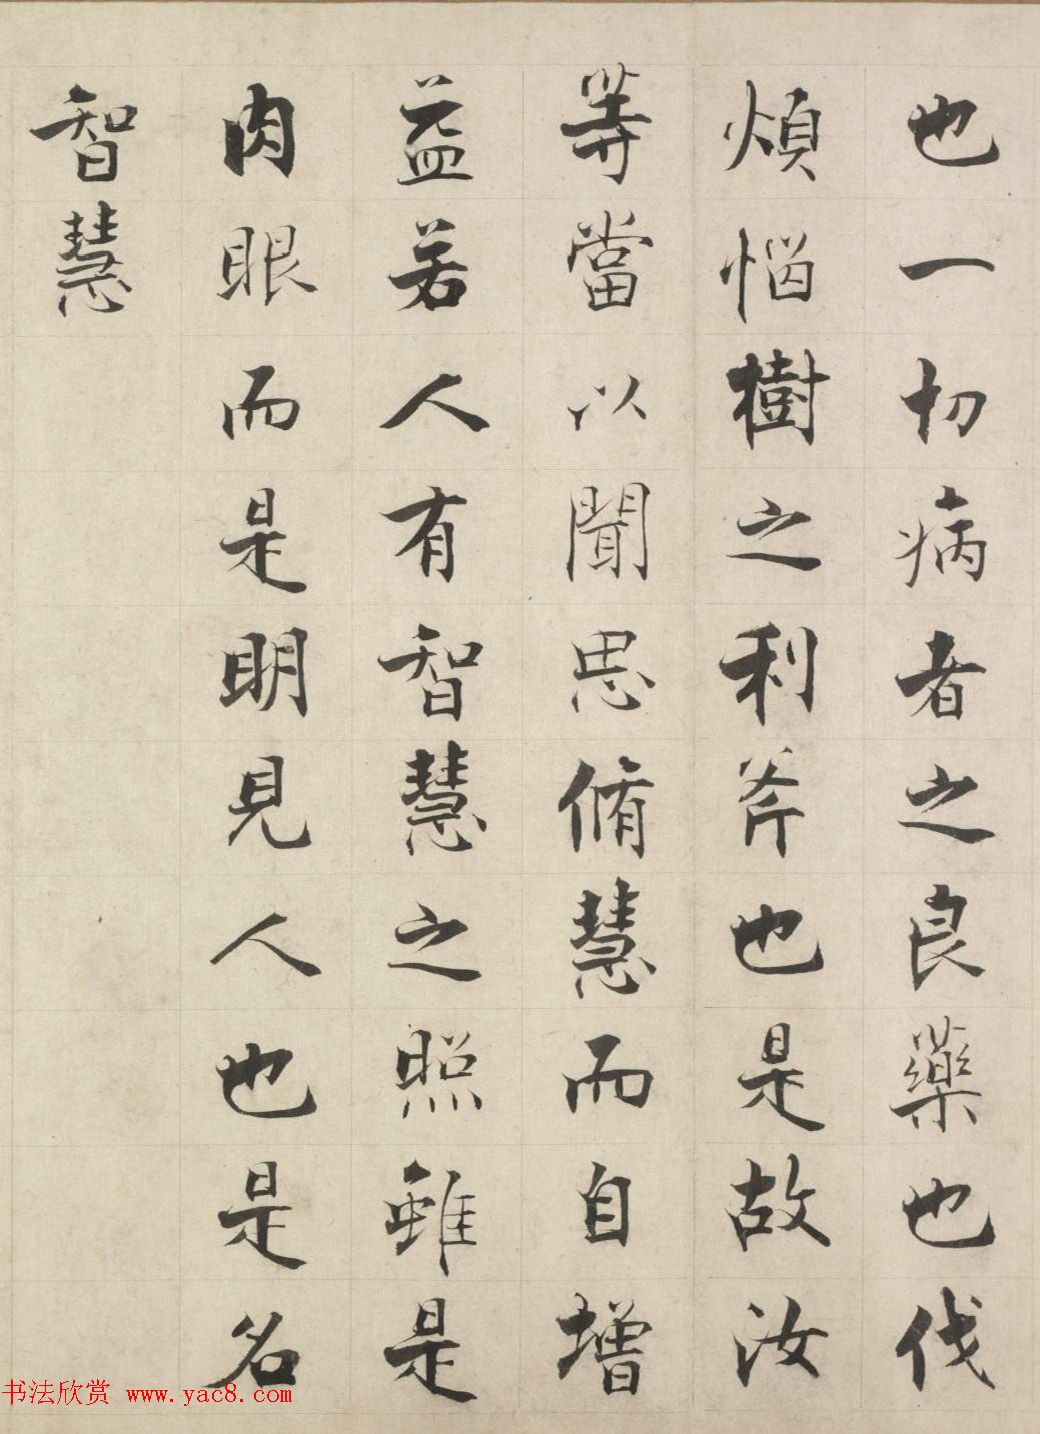 也一切病者之良藥也伐
煩惱樹之利斧也是故汝
等當以聞思脩慧而自增
益若人有智慧之照雖是
肉眼而是明見人也是名
智慧
书法欣赏 www.yac8.com